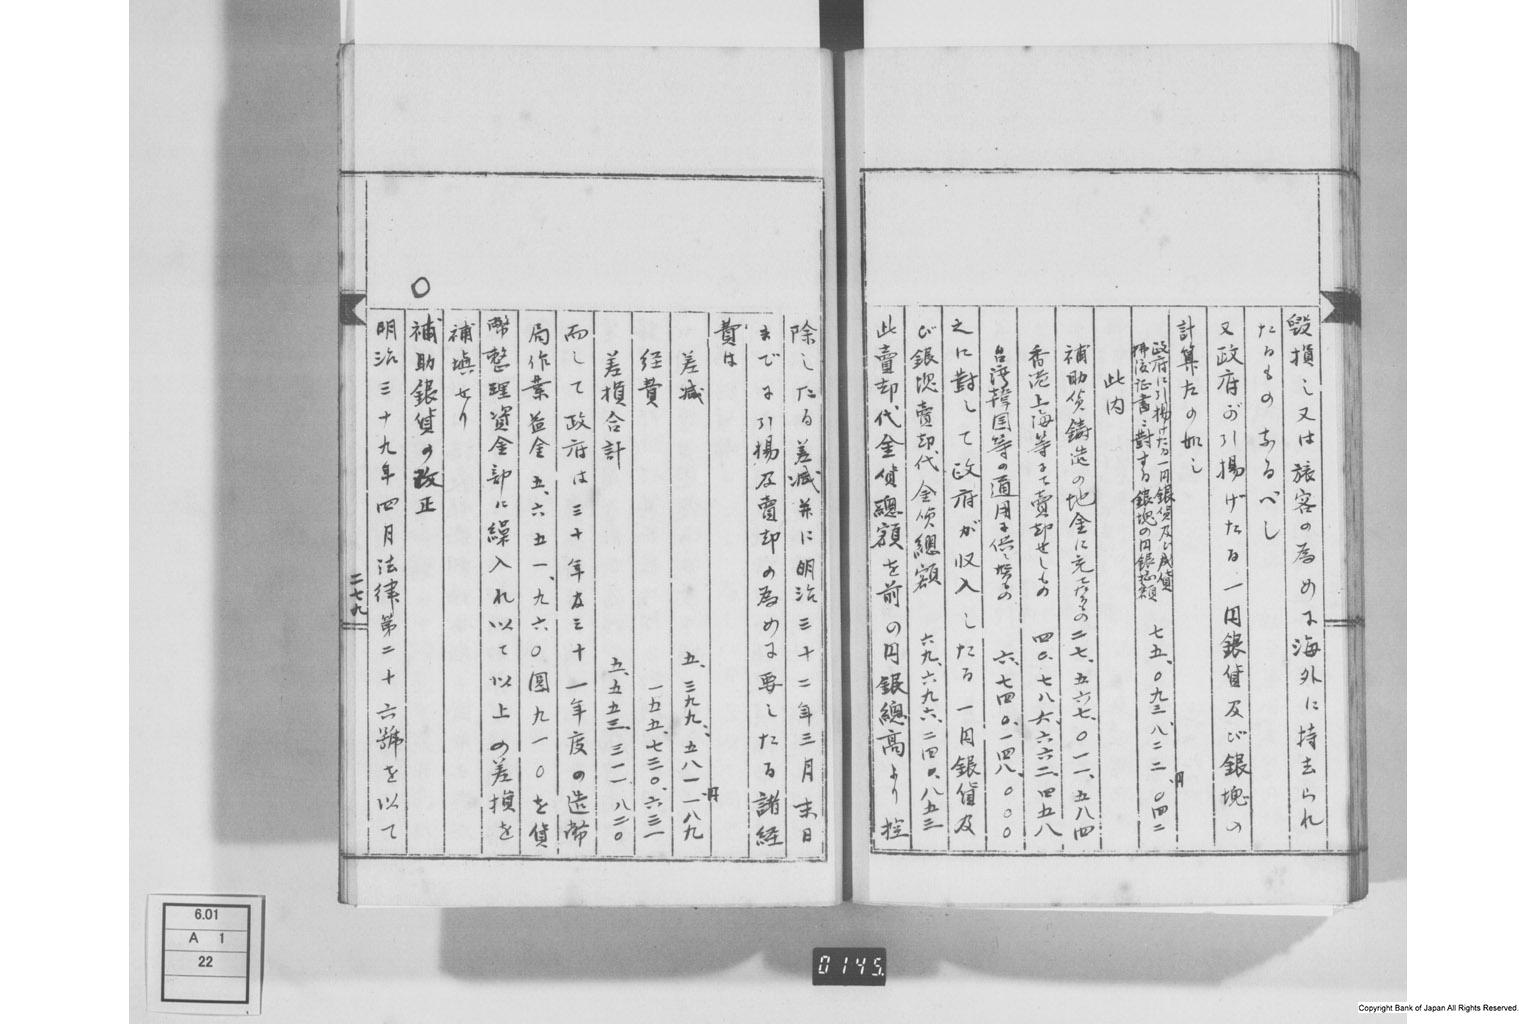 毀損し又は旅客の為めに海外に持去られ
たるものあるべし
又政府が引揚げたる一円銀貨及び銀塊の
計算左の如し
政府に引揚げたる一円銀貨及び成貨
払渡証書に対する銀塊の円銀総額 七五、〇九三、八二二、〇四二円
此内
補助貨鋳造の地金に充てたるもの 二七、五六七、〇一一、五八四
香港上海等にて売却せしもの 四〇、七八六、六六二、四五八
台湾韓国等の通用に供せるもの 六、七四〇、一四八、〇〇〇
之に対して政府が収入したる一円銀貨及
び銀塊賣却代金価總額 六九、六九六、二四〇、八五三
此賣却代金価總額を前の円銀總高より控
除したる差減并に明治三十二年三月末日
までに引揚及賣却の為めに要したる諸経
費は
差減 五、三九九、五八一、一八九円
経費 一五五、七三〇、六三一
差損合計 五、五五三、三一一、八二〇
而して政府は三十年度三十一年度の造幣
局作業益金五、六五一、九六〇圓九一〇を貨
幣整理資金部に繰入れ以て以上の差損を
補塡せり
○
補助銀貨の改正
明治三十九年四月法律第二十六號を以て
二七九
6.01
A 1
22
0145.
Copyright Bank of Japan All Rights Reserved.